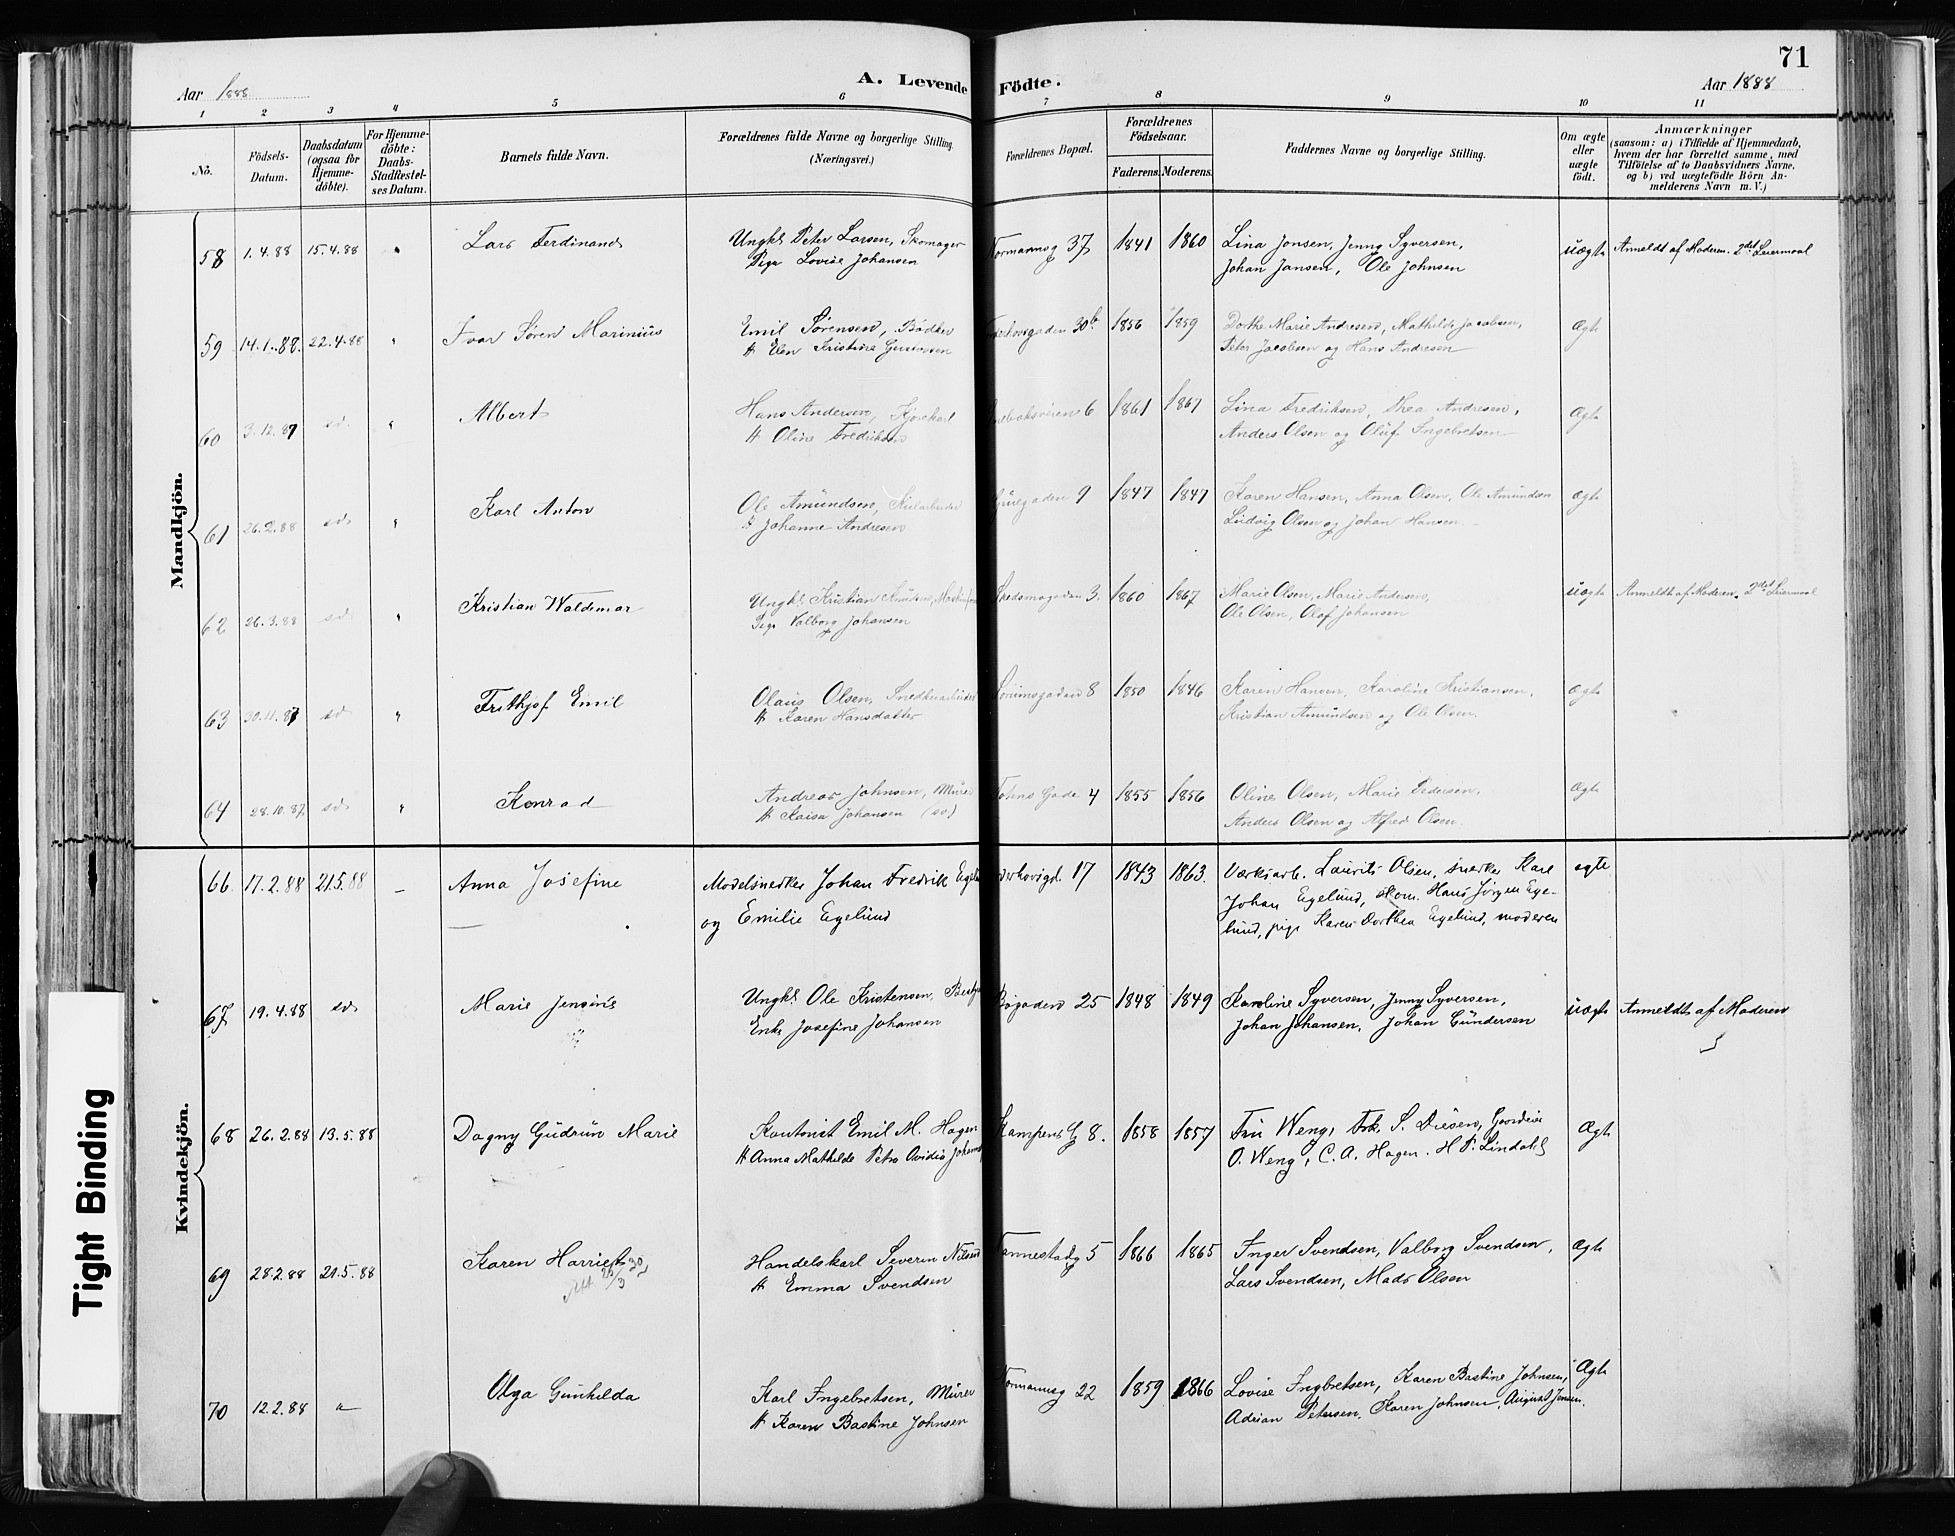 71
Aar 1888
A. Levende Födte.
Aar 1888
1 2 3 4 5 6 7 8 9 10 11
No.
Födsels-Datum.
Daabsdatum (ogsaa for Hjemme-döbte).
For Hjemme-döbte: Daabs-Stadfæstel-ses Datum.
Barnets fulde Navn.
Forældrenes fulde Navne og borgerlige Stilling. (Næringsvei.)
Forældrenes Bopæl.
Forældrenes Födselsaar.
Faderens. Moderens.
Faddernes Navne og borgerlige Stilling.
Om ægte eller uægte födt.
Anmærkninger
(saasom: a) i Tilfælde af Hjemmedaab,
hvem der har forrettet samme, med
Tilföielse af to Daabsvidners Navne,
og b) ved uægtefödte Börn An-
melderens Navn m. V.)
Mandkjön.
58 1.4.88 15.4.88 " Lars Ferdinand Ungk. Peter Larsen, Skomager Normannsg 37 1841 1860 Lina Jonsen, Jenny Syversen, uægte Anmeldt af Moderen. 2det Leiermaal
Pige Lovise Johansen Johan Jansen, Ole Johnsen
59 14.1.88. 22.4.88 " Ivar Søren Marinius Emil Sørensen, Bødker 30b 1856 1859 Dorthe Marie Andresen, Mathilde Jacobsen, Ægte
H Elen Kristine Gustavsen Peter Jacobsen og Hans Andresen
60 3.12.87 sd. " Albert Hans Andersen, 6 1861 1867 Lina Fredriksen, Thea Andresen, Ægte
H Oline Fredriksen Anders Olsen og Oluf Ingebretsen
61 26.2.88 sd. " Karl Anton Ole Amundsen, 9 1847 1847 Karen Hansen, Anna Olsen, Ole Amundsen Ægte
H Johanne Andresen Ludvig Olsen og Johan Hansen
62 26.3.88 sd. " Kristian Waldemar Ungk. Kristian Knudsen, Skedsmogaden 3. 1860 1867 Marie Olsen, Marie Andersen, uægte Anmeldt af Moderen. 2det Leiermaal
Pige Valborg Johansen Ole Olsen, Olaf Johansen
63 30.11.87 sd. " Frithjof Emil Olaus Olsen, Snedkerarbeider Sørumsgaden 8 1850 1846 Karen Hansen, Karoline Kristiansen, Ægte
H Karen Hansdatter Kristian Amundsen og Ole Olsen.
64 28.10.87. sd. " Konrad Andreas Johnsen, Murer Tohns Gade 4 1855 1856 Oline Olsen, Marie Pedersen, Ægte
H Kaisa Johansen (sv.) Anders Olsen og Alfred Olsen.
Kvindekjön.
66 17.2.88 21.5.88 – Anna Josefine Modelsnedker Johan Fredrik 17 1843 1863. Værksarb. Laurits Olsen, snedker Karl ægte
og Emilie Egelund Johan Egelund, skom. Hans Jørgen Ege-
lund, pige Karen Dorthea Egelund, moderen
67 19.4.88 sd. Marie Jensine Ungk. Ole Kristensen, 25 1848 1849 Karoline Syversen, Jenny Syversen, uægte Anmeldt af Moderen
Enke Josefine Johansen Johan Johansen, Johan Gundersen
68 26.2.88 13.5.88 Dagny Gudrun Marie Kontorist Emil M. Hagen Kampens G 8. 1858 1857 Fru Weng, Frk. S. Diesen, Ægte
H Anna Mathilde Petra Ovidia O. Weng, C. A. Hagen. H P. Lindahl
69 28.2.88 21.5.88 Karen Harriet Handelskarl Severin Nilsen 5 1866 1865 Inger Svendsen, Valborg Svendsen, Ægte
H Emma Svendsen Lars Svendsen, Mads Olsen
70 12.2.88 " Olga Gunhilda Karl Ingebretsen, Murer Normannsg 22 1859 1866 Lovise Ingbretsen, Karen Bastine Johnsen, Ægte
H Karen Bastine Johnsen Adrian Petersen, Karen Johnsen, August Jensen.
Tight Binding